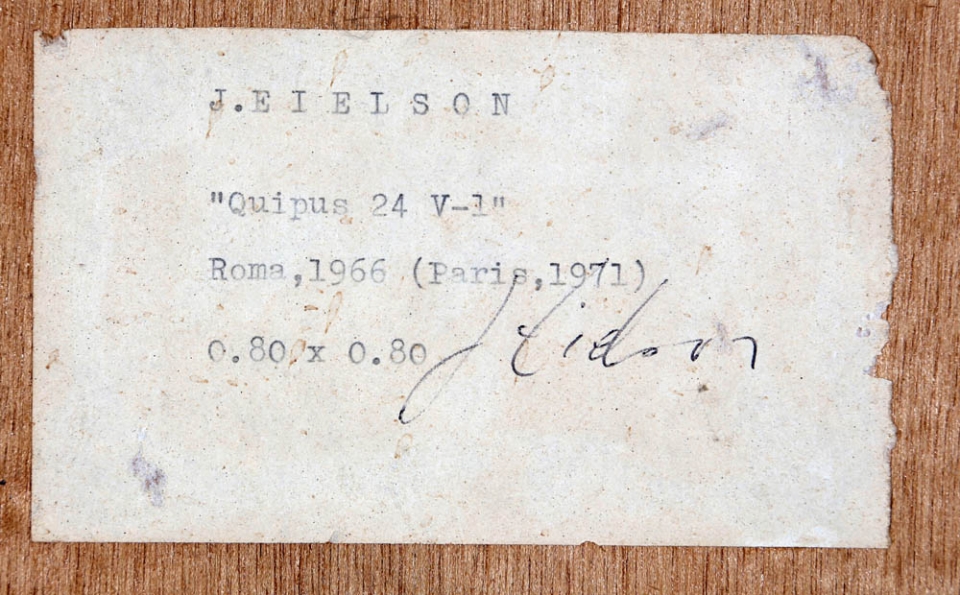 J.EIELSON
"Quipus 24 V-1"
Roma,1966 (Paris,1971)
0.80 x 0.80
J Eielson